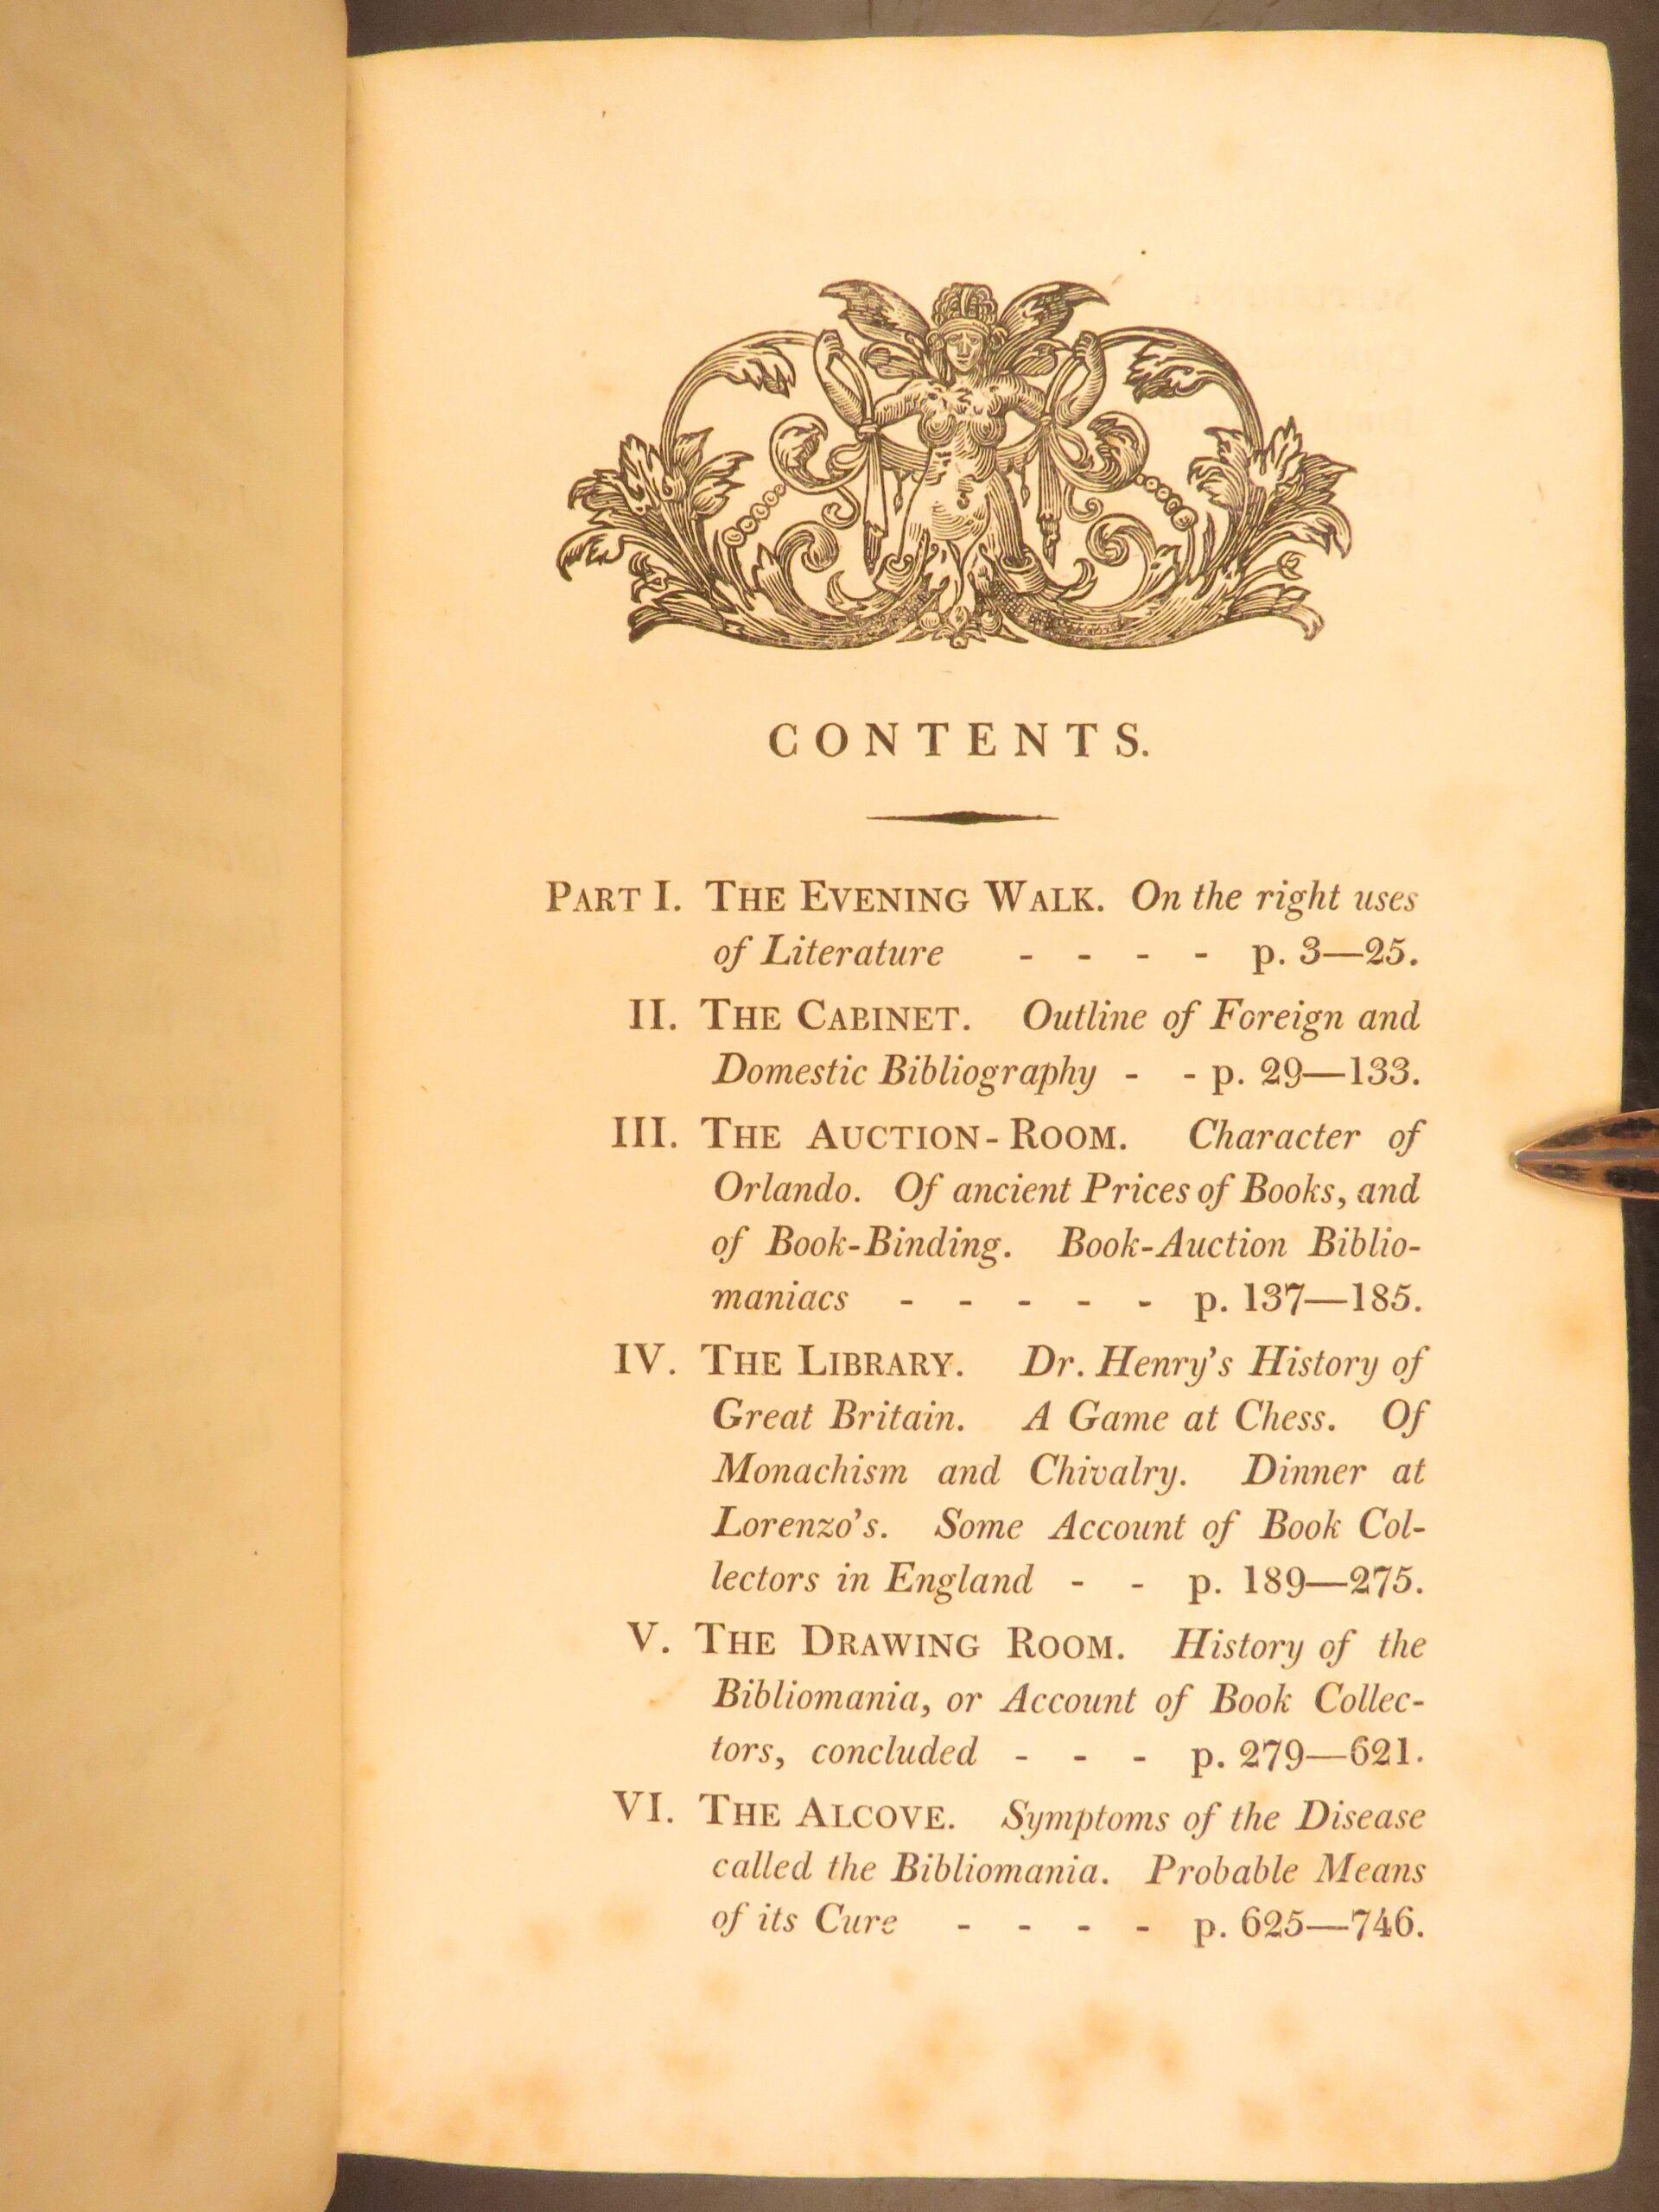 CONTENTS.
PART I. THE EVENING WALK. On the right uses
of Literature - - - - p. 3—25.
II. THE CABINET. Outline of Foreign and
Domestic Bibliography - - p. 29—133.
III. THE AUCTION-ROOM. Character of
Orlando. Of ancient Prices of Books, and
of Book-Binding. Book-Auction Biblio-
maniacs - - - - - p. 137—185.
IV. THE LIBRARY. Dr. Henry's History of
Great Britain. A Game at Chess. Of
Monachism and Chivalry. Dinner at
Lorenzo's. Some Account of Book Col-
lectors in England - - p. 189—275.
V. THE DRAWING ROOM. History of the
Bibliomania, or Account of Book Collec-
tors, concluded - - - p. 279—621.
VI. THE ALCOVE. Symptoms of the Disease
called the Bibliomania. Probable Means
of its Cure - - - - p. 625—746.